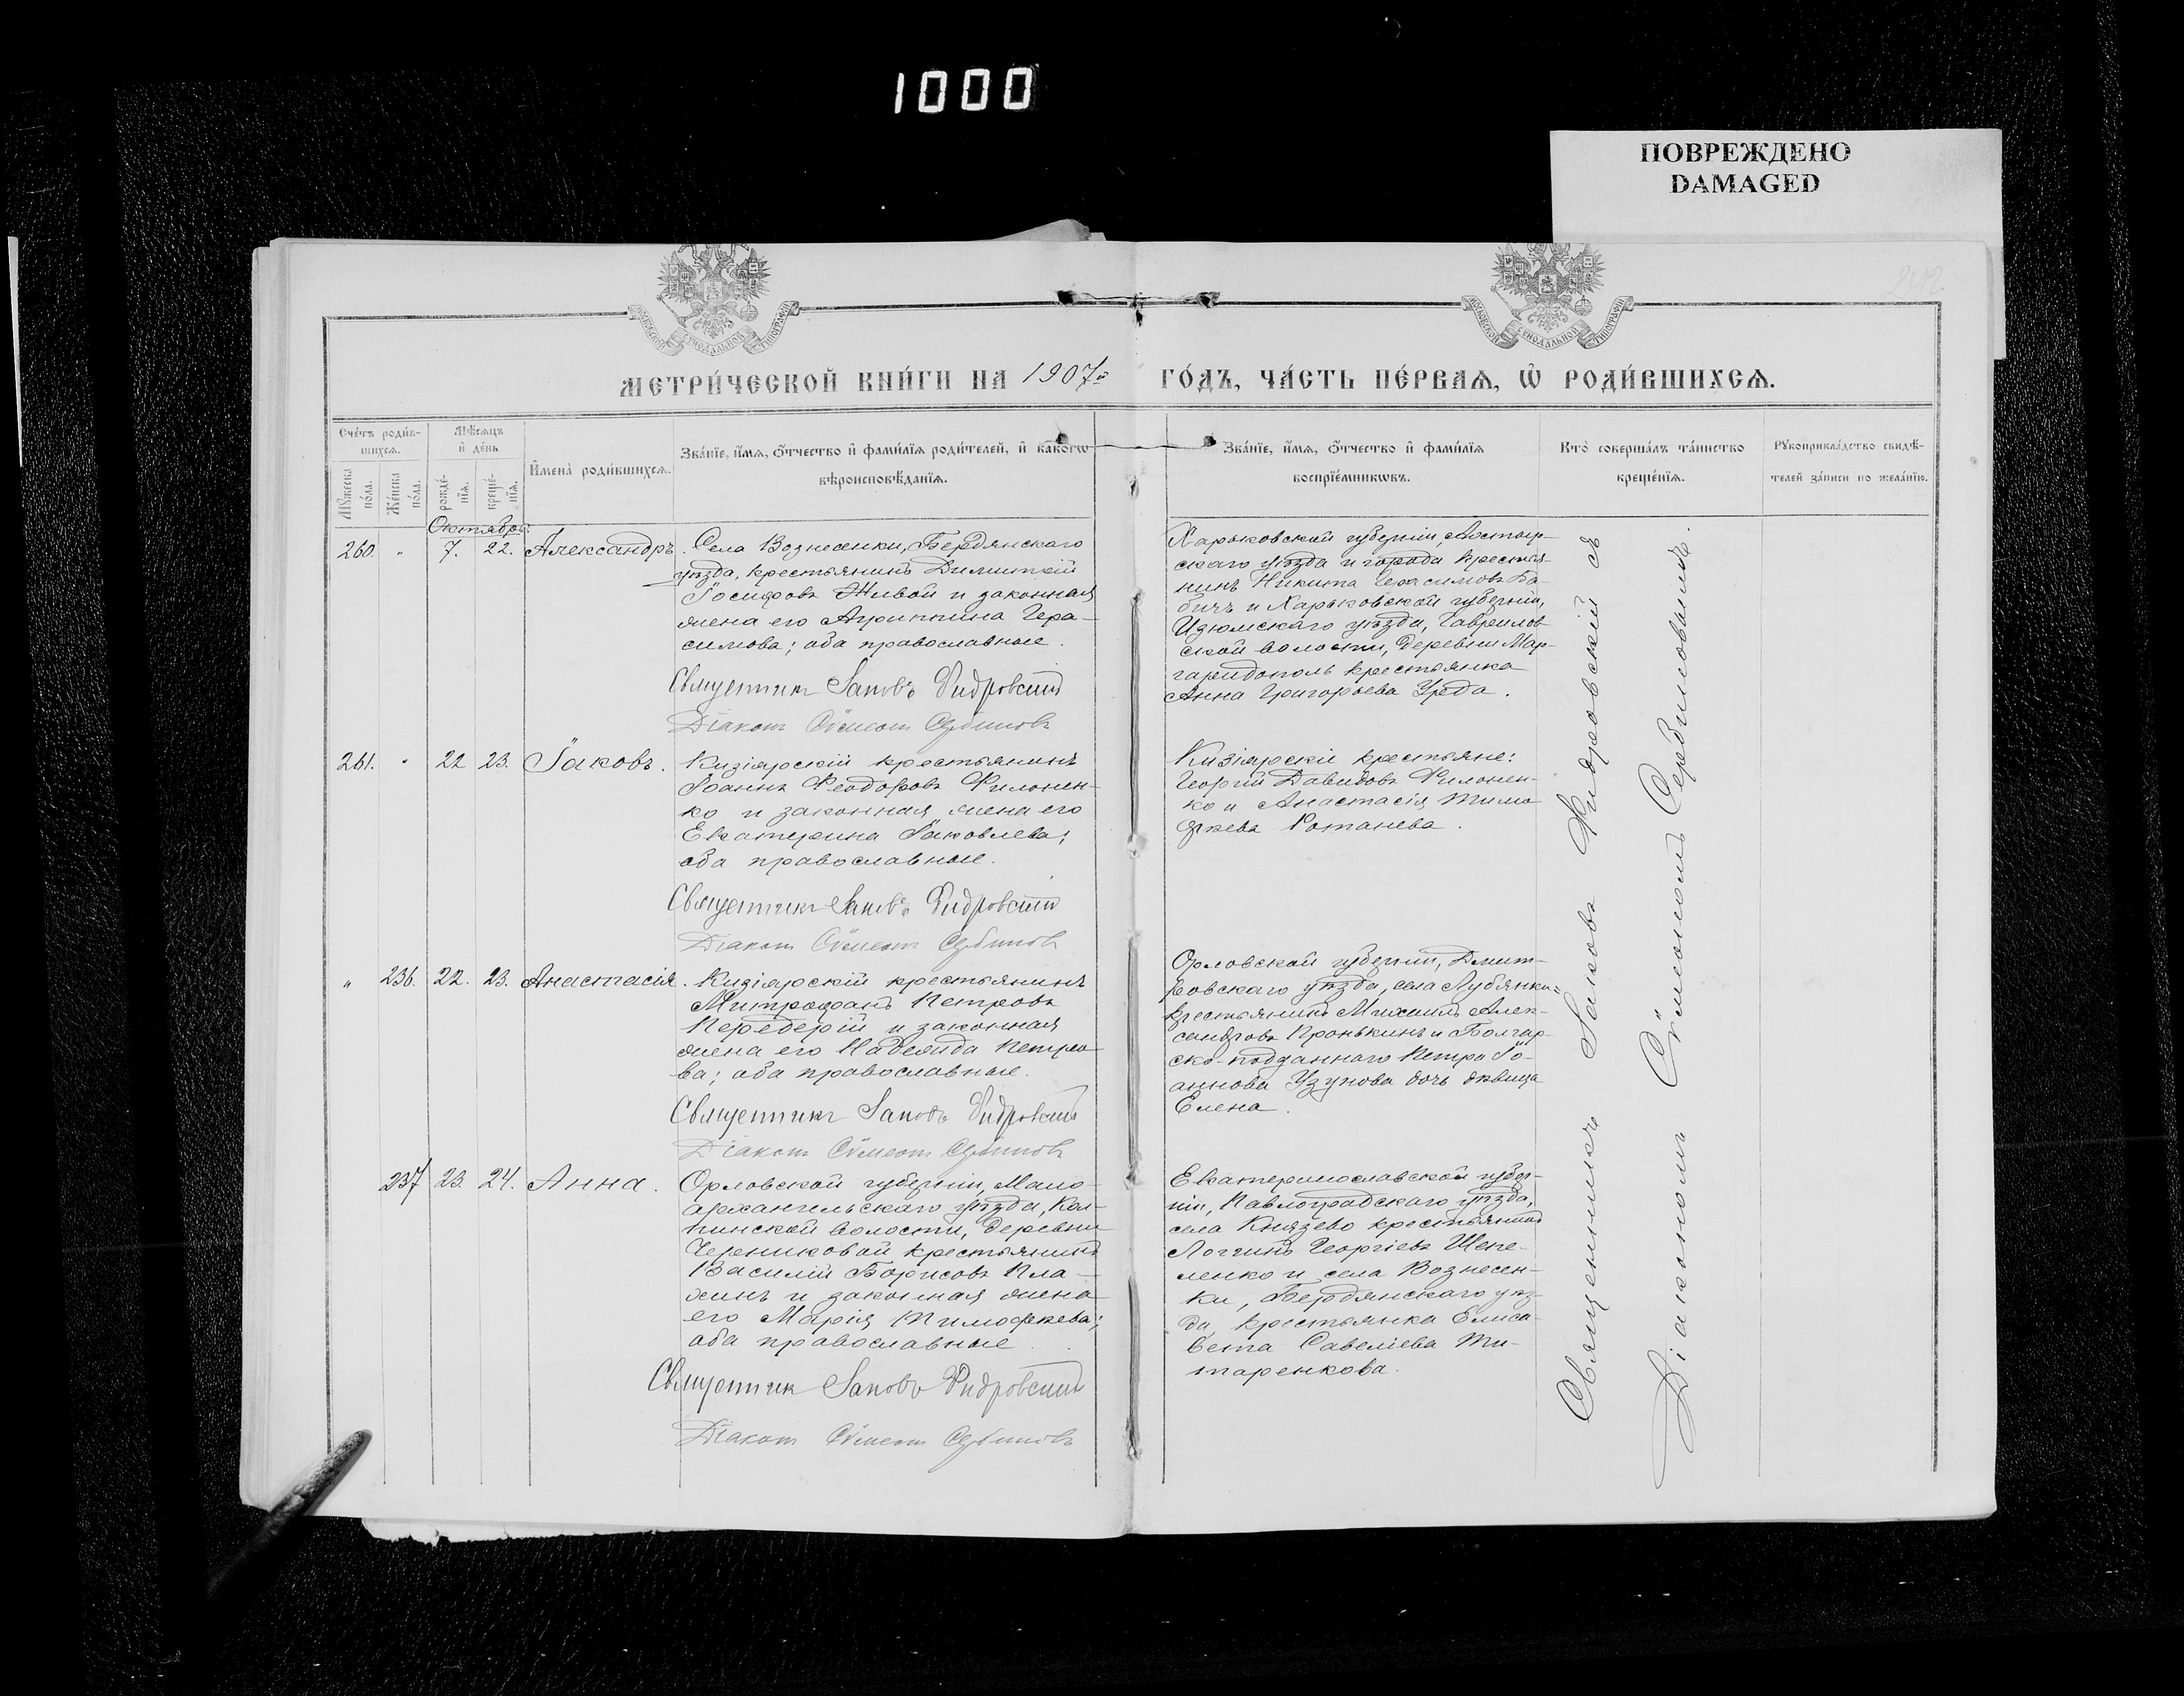 1000
ПОВРЕЖДЕНО
DAMAGED
242.
МОСКОВСКОЙ СѴНОДАЛЬНОЙ ТИПОГРАФІИ
МОСКОВСКОЙ СѴНОДАЛЬНОЙ ТИПОГРАФІИ
МЕТРИ́ЧЕСКОЙ КНИ́ГИ НА 1907й ГО́ДЪ, ЧА́СТЬ ПЕ́РВАѦ, Ѡ҆ РОДИ́ВШИХСѦ.
Сче́тъ роди́в-
шихсѧ.
Мѣ́сѧцъ
и҆ де́нь
Мꙋ́жеска
по́ла.
Же́нска
по́ла.
рожде́-
нїѧ.
креще́-
нїѧ.
И҆мена̀ роди́вшихсѧ.
Зва́нїе, и҆́мѧ, ѻ҆́тчество и҆ фами́лїѧ роди́телей, и҆ како́гѡ
вѣроисповѣ́данїѧ.
Зва́нїе, и҆́мѧ, ѻ҆́тчество и҆ фами́лїѧ
воспрїе́мникѡвъ.
Кто̀ соверша́лъ та́инство
креще́нїѧ.
Рꙋкоприкла́дство свидѣ́-
телей за́писи по жела́нїю.
Октябрь.
260. " 7. 22. Александръ.
Села Вознесенки, Бердянскаго
уѣзда, крестьянинъ Димитрій
Іосифовъ Живой и законная
жена его Агриппина Гера-
симова; оба православные.
Священникъ Іаковъ Фидровскій
Діаконъ Сѵмеонъ Сербиновъ
Харьковской губерніи,
скаго уѣзда и города крестья-
нинъ Никита Герасимовъ Ба-
бичъ и Харьковской губерніи,
Изюмскаго уѣзда, Гаврилов-
ской волости, деревни Мар-
гаридополь крестьянка
Анна Григорьева
261. " 22 23. Іаковъ.
Кизіярскій крестьянинъ
Іоаннъ Феодоровъ Филонен-
ко и законная жена его
Екатерина Іаковлева;
оба православные.
Священникъ Іаковъ Фидровскій
Діаконъ Сѵмеонъ Сербиновъ
Кизіярскіе крестьяне:
Георгій Давидовъ Филонен-
ко и Анастасія Тимо-
ѳеева Ротанева.
" 236. 22. 23. Анастасія.
Кизіярскій крестьянинъ
Митрофанъ Петровъ
Передерій и законная
жена его Надежда Петро-
ва; оба православные.
Священникъ Іаковъ Фидровскій
Діаконъ Сѵмеонъ Сербиновъ
Орловской губерніи, Дмит-
ровскаго уѣзда, села Лубянки
крестьянинъ Михаилъ Алек-
сандровъ Пронькинъ и Болгар-
ско-подданнаго Петра Іо-
аннова Узунова дочь дѣвица
Елена.
237 23. 24. Анна.
Орловской губерніи, Мало-
архангельскаго уѣзда, Кол-
пинской волости, деревни
Черениковой крестьянинъ
Василій Борисовъ Пла-
хинъ и законная жена
его Марія Тимоѳеева;
оба православные.
Священникъ Іаковъ Фидровскій
Діаконъ Сѵмеонъ Сербиновъ
Екатеринославской губер-
ніи, Павлоградскаго уѣзда,
села Князево крестьянинъ
Логгинъ Георгіевъ Шепе-
ленко и села Вознесен-
ки, Бердянскаго уѣз-
да, крестьянка Елиса-
вета Савеліева Ти-
таренкова.
Священникъ Іаковъ Фидровскій съ
Діакономъ Сѵмеономъ Сербиновымъ.